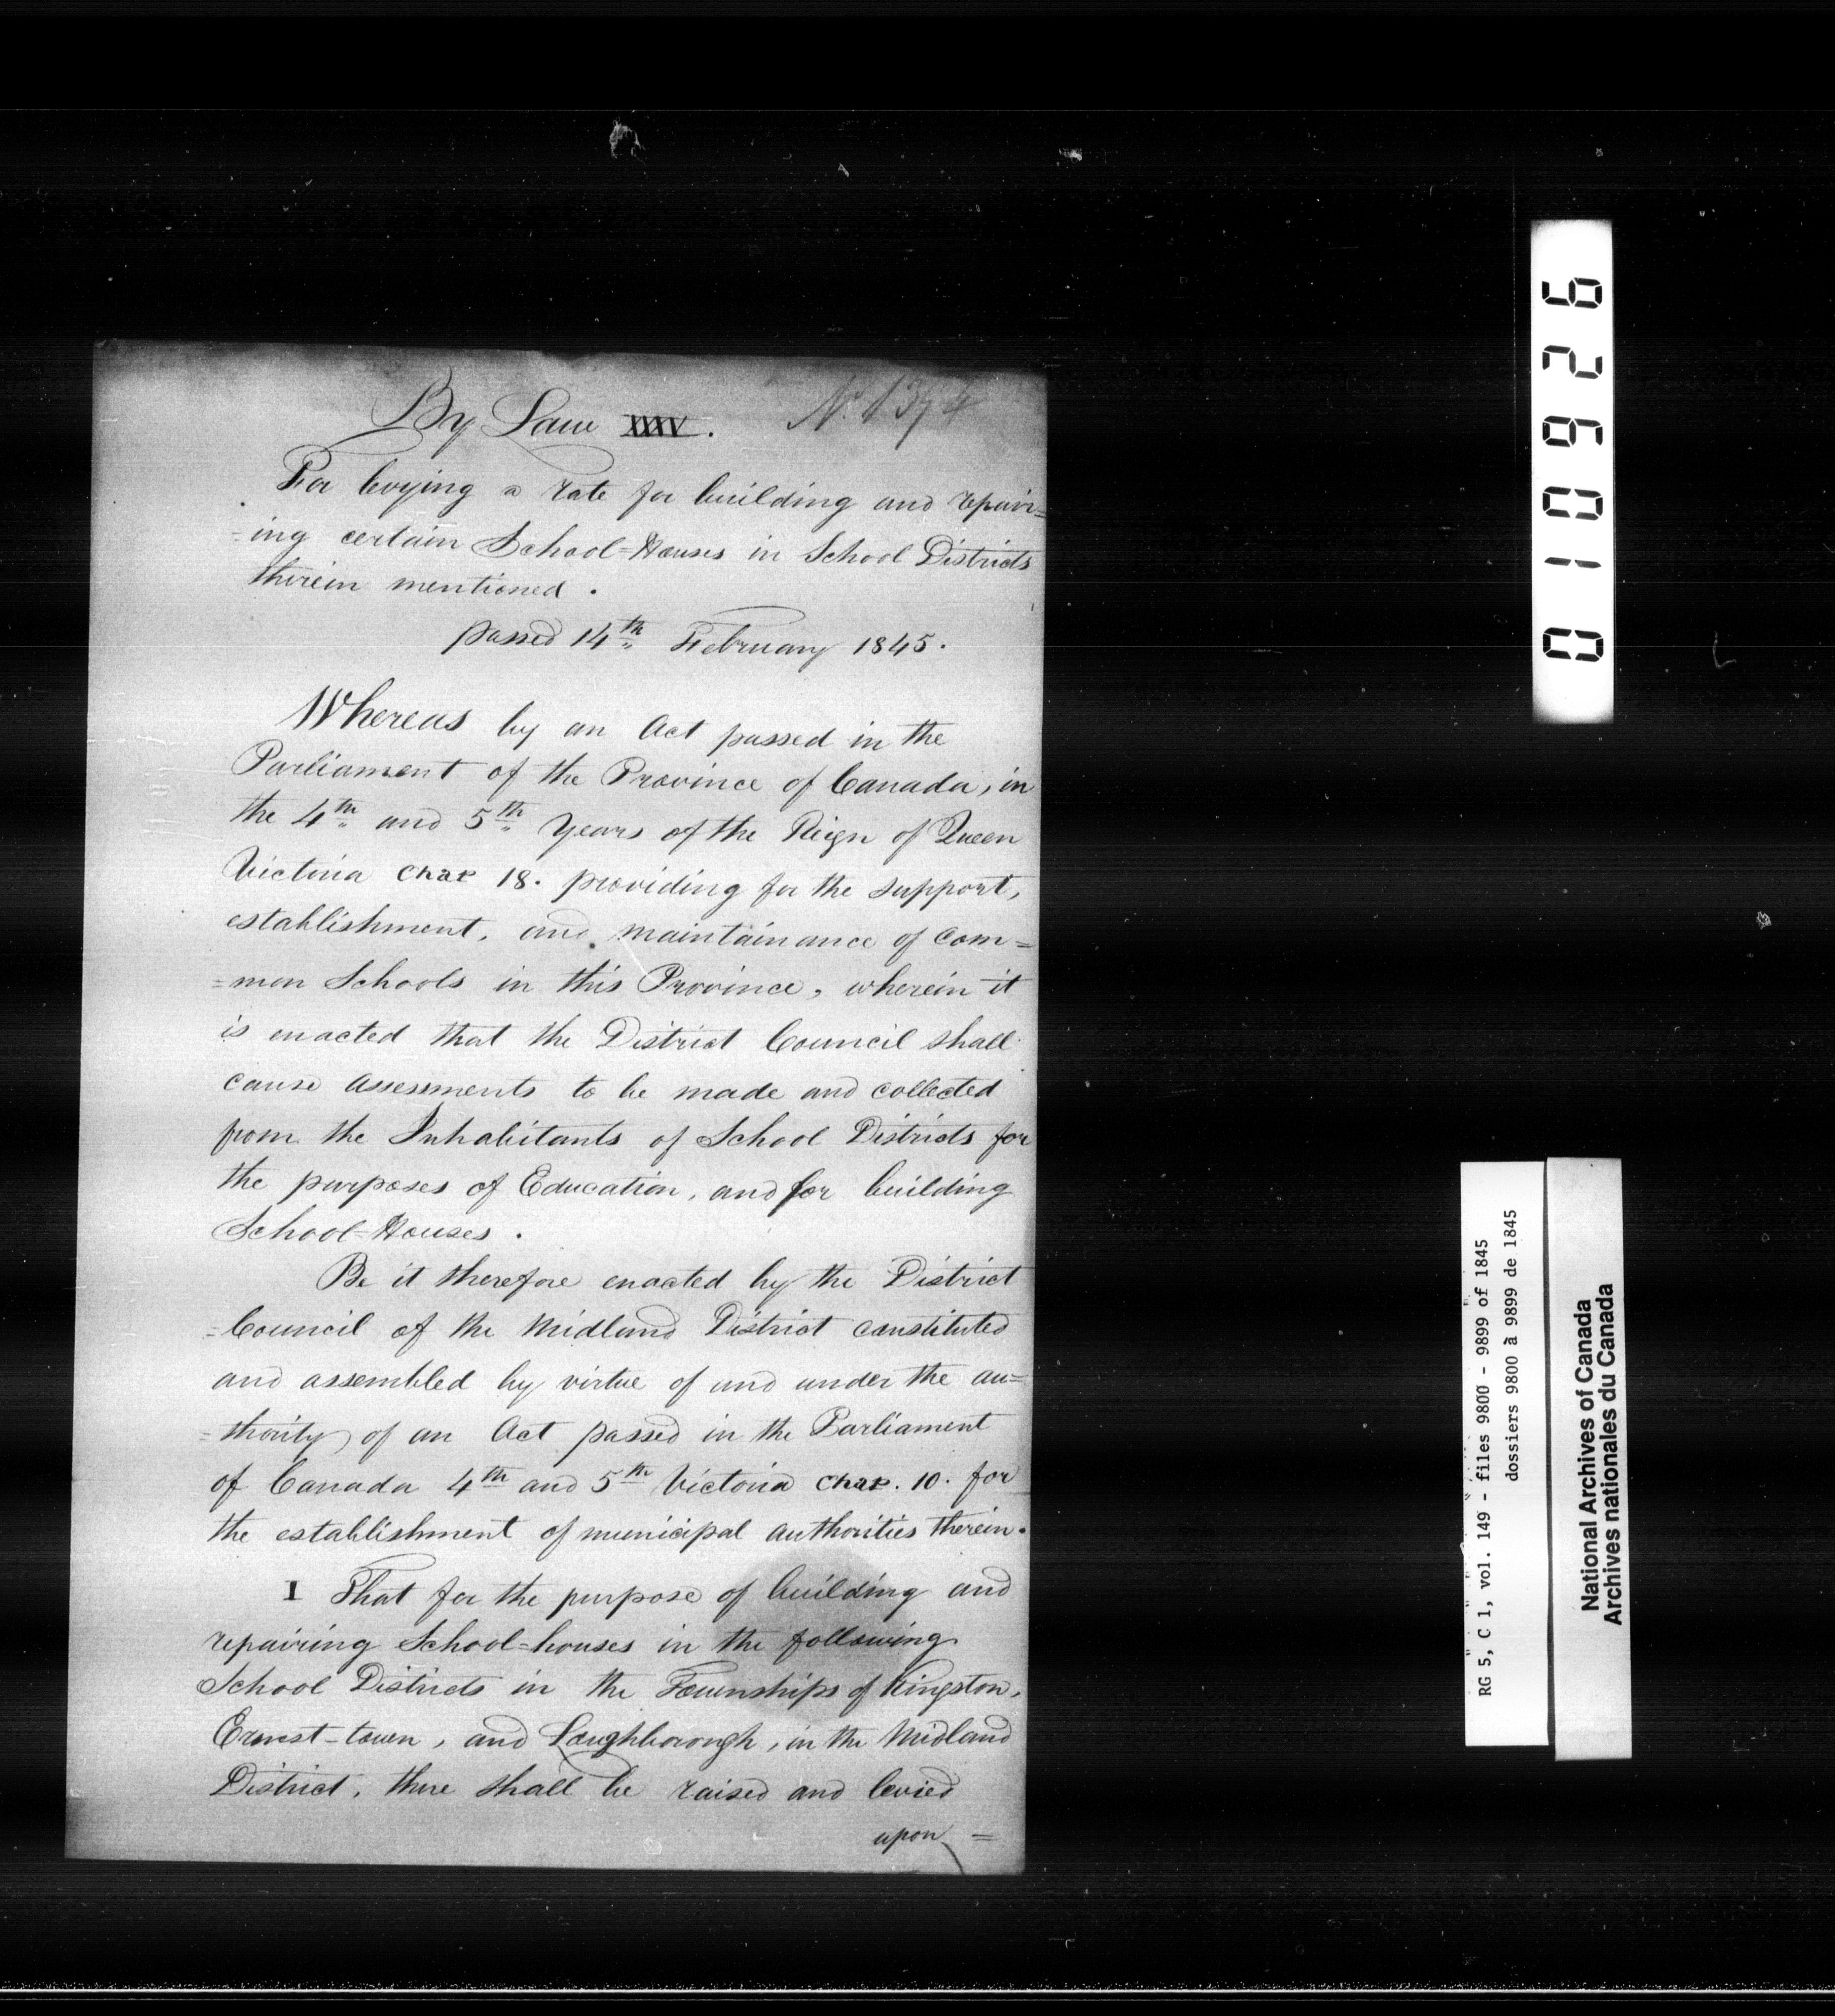 By Law XXXV. No. 1394
For levying a rate for building and repair=
=ing certain School=Houses in School Districts
therein mentioned.
passed 14th February 1845.
Whereas by an Act passed in the
Parliament of the Province of Canada, in
the 4th and 5th Years of the Reign of Queen
Victoria Chap 18. providing for the support,
establishment, and maintainance of Com=
=mon Schools in this Province, wherein it
is enacted that the District Council shall
cause Assessments to be made and collected
from the Inhabitants of School Districts for
the purposes of Education, and for building
School=Houses.
Be it therefore enacted by the District
=Council of the Midland District constituted
and assembled by virtue of and under the au=
=thority of an Act passed in the Parliament
of Canada 4th and 5th Victoria Chap. 10. for
the establishment of municipal authorities therein.
I That for the purpose of building and
repairing School=houses in the following
School Districts in the Townships of Kingston,
Ernest-town, and Loughborough, in the Midland
District, there shall be raised and levied
upon =
010926
RG 5, C 1, vol. 149 - files 9800 - 9899 of 1845
dossiers 9800 à 9899 de 1845
National Archives of Canada
Archives nationales du Canada